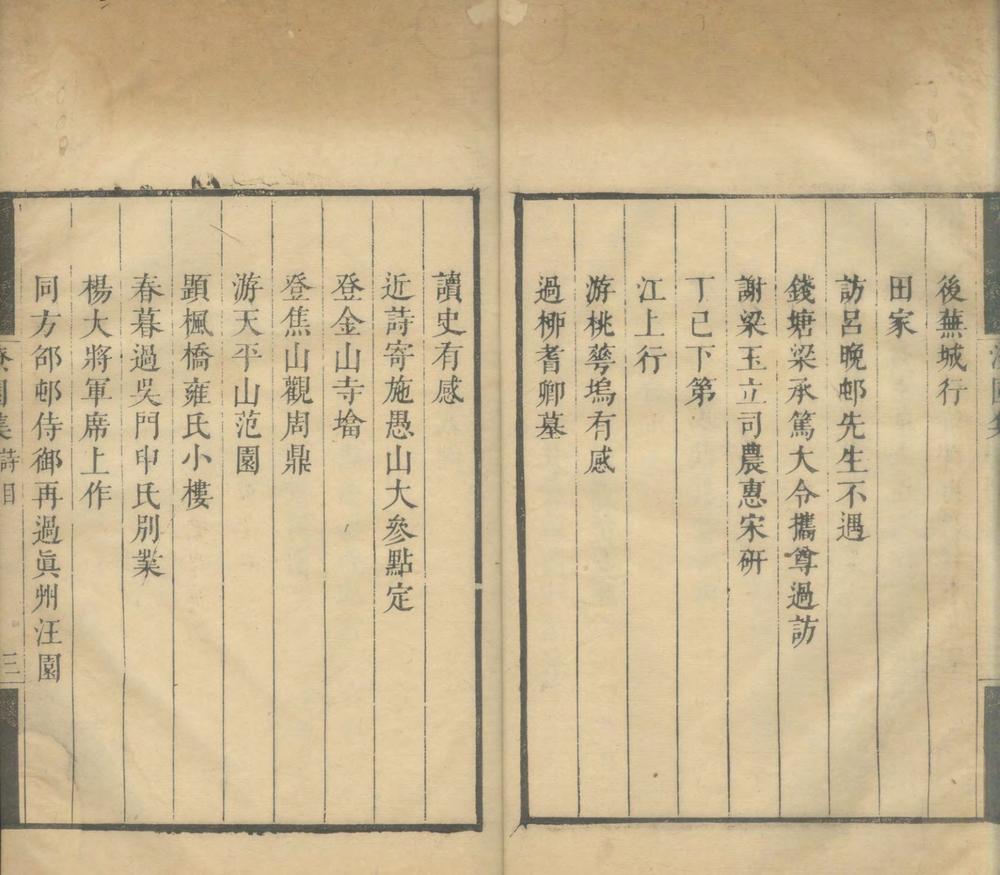 後蕪城行
田家
訪呂晚邨先生不遇
錢塘梁承篤大令攜尊過訪
謝梁玉立司農惠宋硏
丁巳下第
江上行
游桃蕚塢有感
過桺耆卿墓
讀史有感
近詩寄施愚山大參點定
登金山寺墖
登焦山觀周鼎
游天平山范園
題楓橋雍氏小樓
春暮過吳門申氏別業
楊大將軍席上作
同方邵邨侍御再過眞州汪園
園集 詩目 三